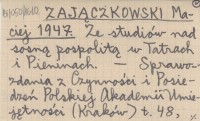 ZAJĄCZKOWSKI Ma-
ciej 1947. Ze studiów nad
sosną pospolitą w Tatrach
i Pieninach — Sprawo-
zdania z Czynności i Posie-
dzeń Polskiej Akademii Umie-
jętności (Kraków) t. 48,